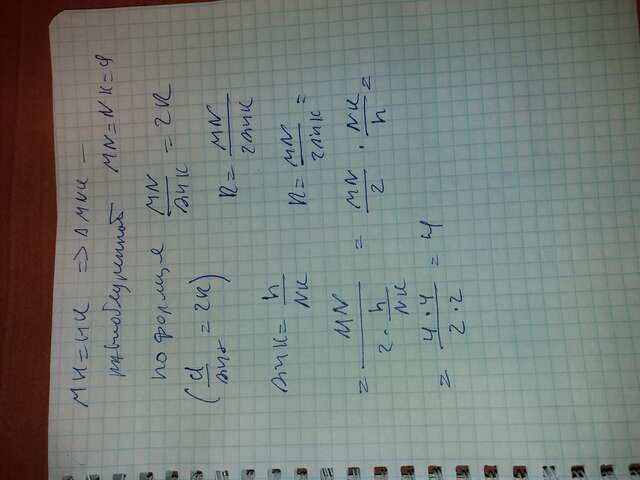 MH = HK => ΔMNK —
равнобедренной MN = NK = 4
по формуле MN/sin K = 2R
(a/sin α = 2R) R = MN/2 sin K
sin K = h/NK R = MN/2 sin K =
= MN/(2 · h/NK) = MN/2 · NK/h =
= 4 · 4/2 · 2 = 4